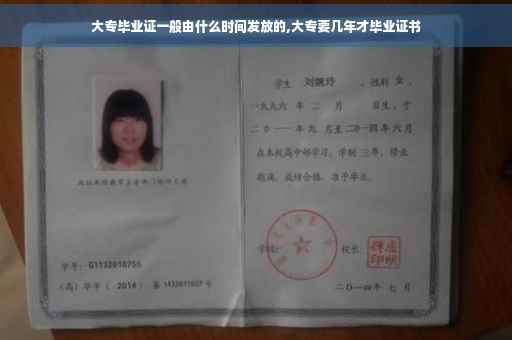 大专毕业证一般由什么时间发放的,大专要几年才毕业证书
学生 刘婉玲 ,性别 女 ,
一九九六 年 二 月 日生,于
二0一一 年 九 月至二0一四年 六 月
在本校高中部学习,学制 三年,修业
期满,成绩合格,准予毕业。
学号: G1132010755
学校:
校长:
(高) 毕字 ( 2014 ) 第 1432011027 号
二〇一四年 七 月